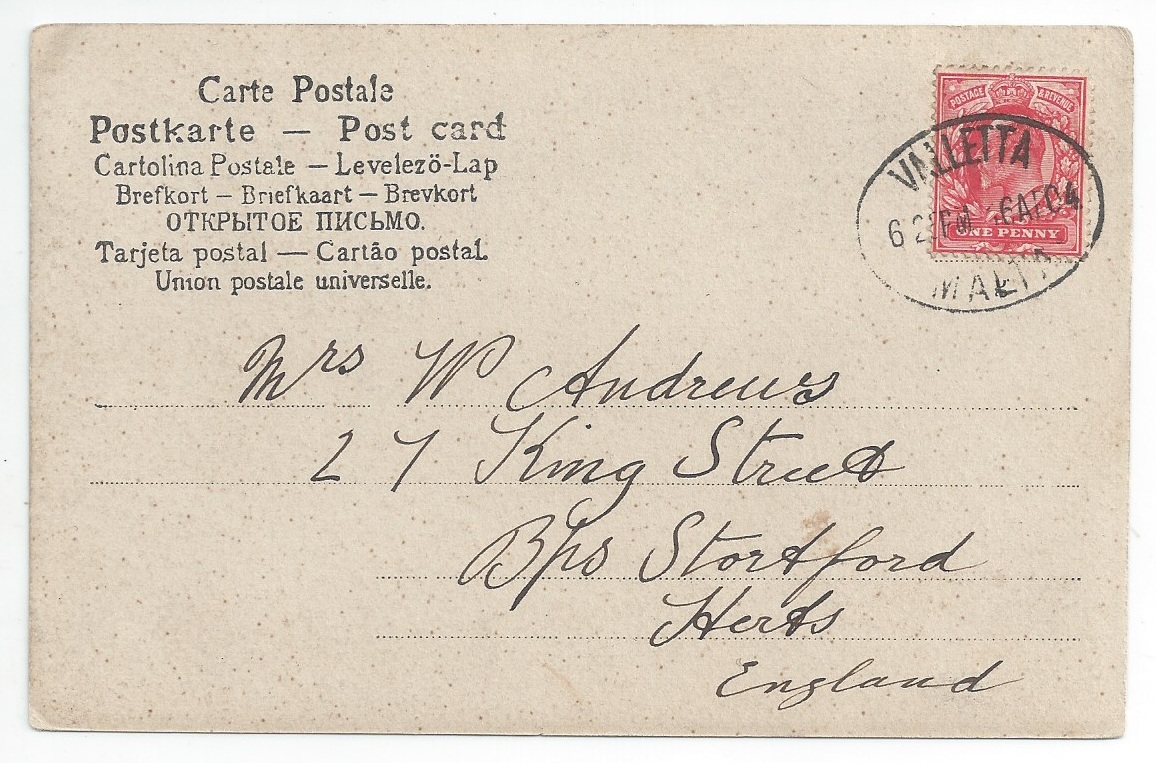 Carte Postale
Postkarte — Post card
Cartolina Postale — Levelezö-Lap
Brefkort — Briefkaart — Brevkort
ОТКРЫТОЕ ПИСЬМО.
Tarjeta postal — Cartão postal.
Union postale universelle.
POSTAGE & REVENUE
ONE PENNY
VALLETTA
MALTA
Mrs W Andrews
27 King Street
Bps Stortford
Herts
England